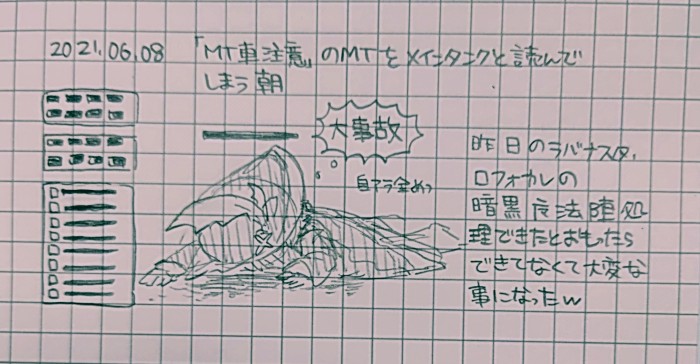 2021.06.08 「MT車注意」のMTをメインタンクと読んで
しまう朝
大事故
昨日のラバナスタ、
ロフォカレの
暗黒広法陣処
理できたとおもったら
できてなくて大変な
事になったw